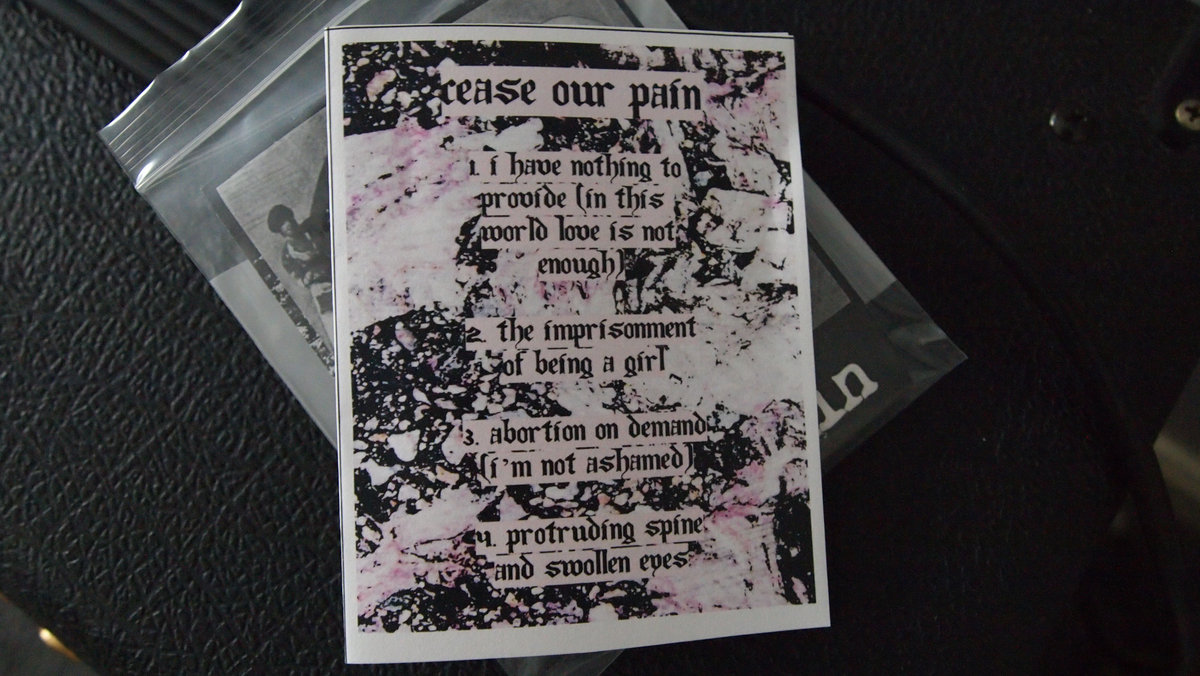 cease our pain
1. i have nothing to
provide (in this
world love is not
enough)
2. the imprisonment
of being a girl
3. abortion on demand
(i'm not ashamed)
4. protruding spine
and swollen eyes